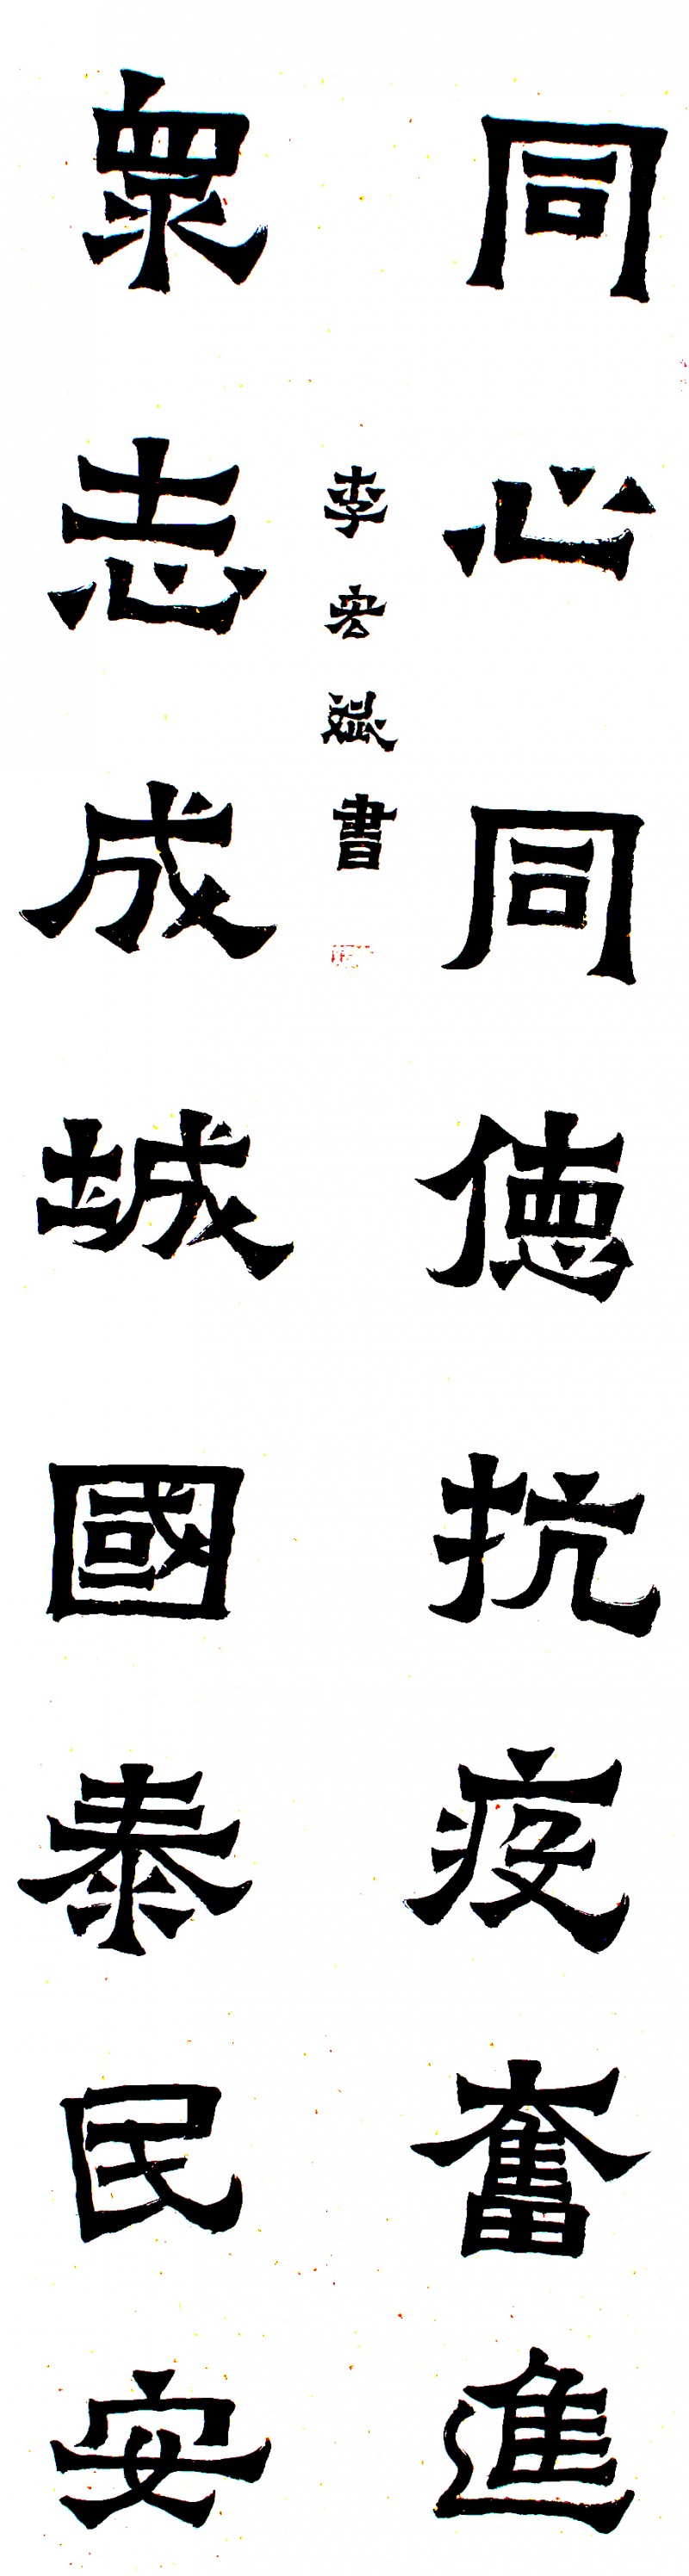 同心同德抗疫奮進
衆志成城國泰民安
李宏斌書